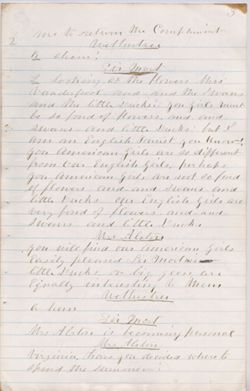 2 me to return the Compliment
3
A shem!
Sir Mort
I looking at the flowers Mrs
and and the Swans
and the little Ducks. you Girls must
be so fond of flowers, and and
swans and little Ducks. but I
am an English Tourist you know,
you American Girls are so different
from Our English Girls, perhaps
you American Girls are not so fond
of flowers and and swans and
little Ducks. Our English Girls are
very fond of flowers and and
Swans and little Ducks
Mrs Alston
you will find our American Girls
easily pleased Sir Mort
little Ducks or big geese are
Equally interesting to them
A hem
Sir Mort
Mrs Alston is becoming personal
Mrs Alston
Virginia, have you decided where to
spend the summer?